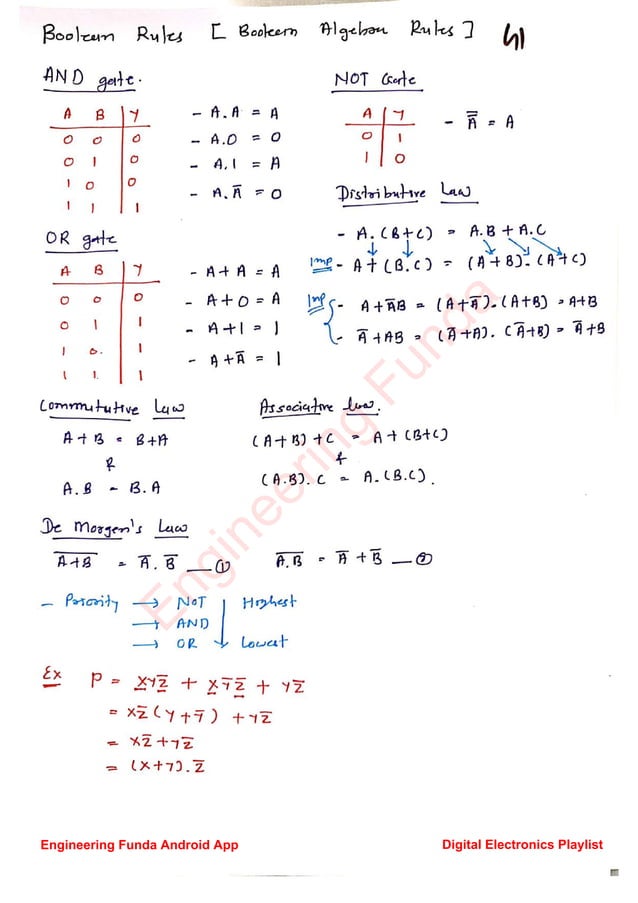 Boolean Rules [ Boolean Algebra Rules ] 41
AND gate.
A B Y
0 0 0
0 1 0
1 0 0
1 1 1
- A.A = A
- A.0 = 0
- A.1 = A
- A.A̅ = 0
NOT Gate
A Y
0 1
1 0
- A̿ = A
Distributive Law
- A.(B+C) = A.B + A.C
Imp - A+(B.C) = (A+B).(A+C)
Imp - A+A̅B = (A+A̅).(A+B) = A+B
- A̅+AB = (A̅+A).(A̅+B) = A̅+B
OR gate
A B Y
0 0 0
0 1 1
1 0. 1
1 1. 1
- A+A = A
- A+0 = A
- A+1 = 1
- A+A̅ = 1
Commutative Law
A+B = B+A
&
A.B = B.A
Associative law.
(A+B)+C = A+(B+C)
&
(A.B).C = A.(B.C).
De Morgen's Law
A̅+̅B̅ = A̅.B̅ — ①
A̅.̅B̅ = A̅+B̅ — ②
- Priority → NOT Highest
→ AND
→ OR Lowest
Ex P = XYZ̅ + XY̅Z̅ + YZ̅
= XZ̅(Y+Y̅) + YZ̅
= XZ̅+YZ̅
= (X+Y).Z̅
Engineering Funda
Engineering Funda Android App
Digital Electronics Playlist